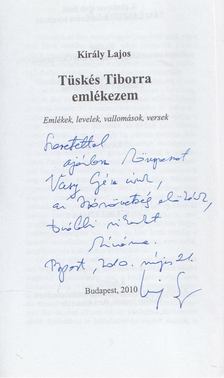 Király Lajos
Tüskés Tiborra
emlékezem
Emlékek, levelek, vallomások, versek
Szeretettel
ajánlom könyvemet
Vasy Géza úrnak,
az Írószövetség elnökének,
további sikereket
kívánva.
Bpest, 2010. május 21.
Budapest, 2010